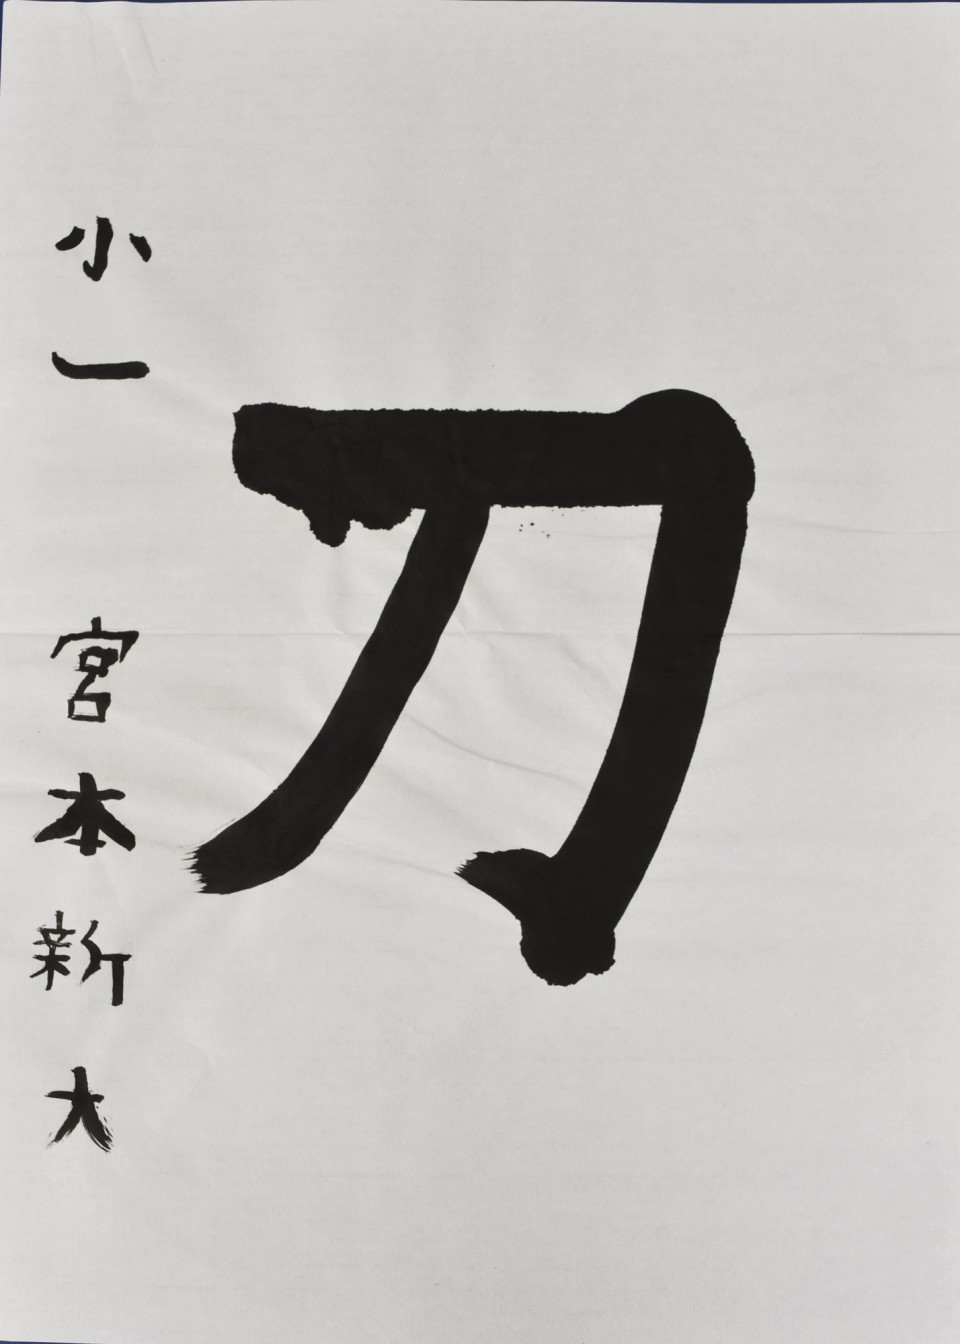 刀
小一 宮本新大